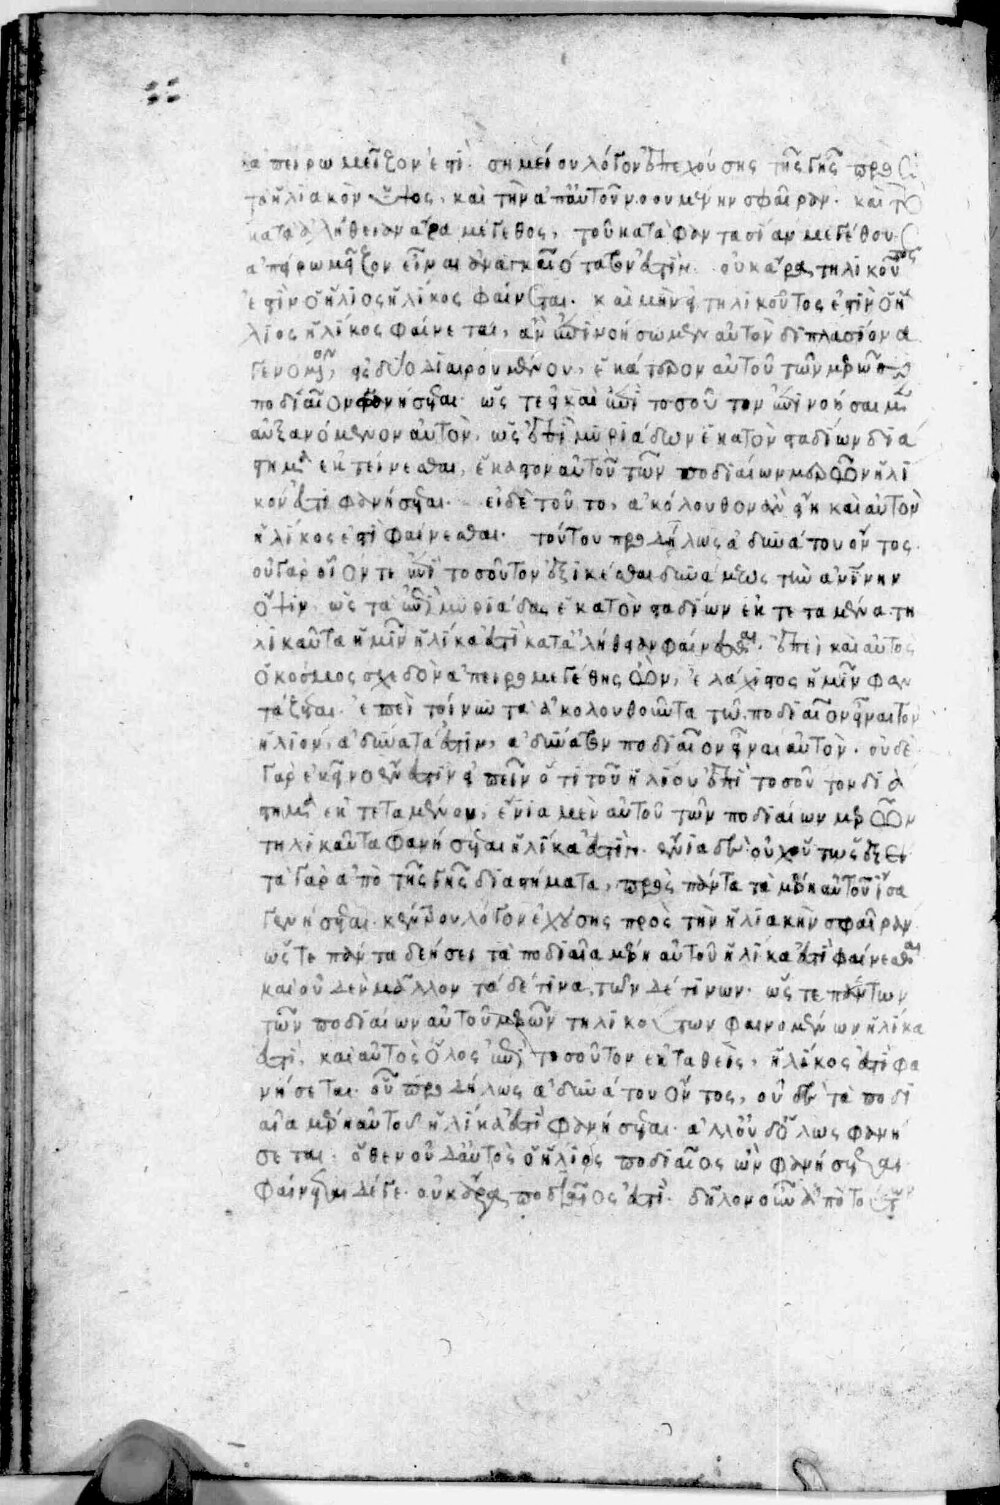 ἀπείρω μεῖζον ἐστὶ· σημείου λόγον ἐπεχούσης τῆς γῆς πρὸς
τὸ ἡλιακὸν ὕψος, καὶ τὴν ἀπ' αὐτοῦ νοουμένην σφαῖραν· καὶ τὸ
κατὰ ἀλήθειαν ἄρα μέγεθος, τοῦ κατὰ φαντασίαν μεγέθους
ἀπείρω μεῖζον εἶναι ἀναγκαιότατον ἐστὶν· οὐκ ἄρα τηλικοῦτος
ἐστὶν ὁ ἥλιος ἡλίκος φαίνεται. καὶ μὴν εἰ τηλικοῦτος ἐστὶν ὁ ἥ
λιος ἡλίκος φαίνεται, ἂν ἐπινοήσωμεν αὐτὸν διπλασίονα
γενόμενον, εἰς δύο διαιρουμένου, ἑκάτερον αὐτοῦ τῶν μερῶν
ποδιαῖον φανήσεται· ὥστε εἰ καὶ ἐπὶ τοσοῦτον ἐπινοῆσαιμεν
αὐξανόμενον αὐτὸν, ὡς ἐπὶ μυριάδων ἑκατὸν σταδίων διά
στημα ἐκτείνεσθαι, ἕκαστον αὐτοῦ τῶν ποδιαίων μερῶν ἡλί
κον ἐστὶ φανήσεται· εἰ δὲ τοῦτο, ἀκόλουθον ἂν εἴη καὶ αὐτὸν
ἡλίκος ἐστὶ φαίνεσθαι· τούτου προδήλως ἀδυνάτου ὄντος·
οὐ γὰρ οἷόν τε ἐπὶ τοσοῦτον ἐξικέσθαι δυνάμεως τὴν ἀνίνην
ὄψιν, ὥστε τὰ ἐπὶ μυριάδας ἑκατὸν σταδίων ἐκτεταμένα τη
λικαῦτα ἡμῖν ἡλίκα ἐστὶ κατ' ἀλήθειαν φαίνεσθαι· ἐπεὶ καὶ αὐτὸς
ὁ κόσμος σχεδὸν ἀπειρομεγέθης ὢν, ἐλάχιστος ἡμῖν φαν
τάζεται· ἐπεὶ τοίνυν τὰ ἀκολουθοῦντα τῶ ποδιαῖον εἶναι τὸν
ἥλιον, ἀδύνατά ἐστιν, ἀδύνατον ποδιαῖον εἶναι αὐτὸν· οὐδὲ
γὰρ ἐκεῖνο ἔνεστιν εἰπεῖν ὅτι τοῦ ἡλίου ἐπὶ τοσοῦτον διά
στημα ἐκτεταμένου, ἔνια μὲν αὐτοῦ τῶν ποδιαίων μερῶν
τηλικαῦτα φανήσεται ἡλίκα ἐστὶν· ἔνια δὲ οὐχ οὕτως ἕξει·
τὰ γὰρ ἀπὸ τῆς γῆς διαστήματα, πρὸς πάντα τὰ μέρη αὐτοῦ ἴσα
γενήσεται· κέντρου λόγον ἐχούσης πρὸς τὴν ἡλιακὴν σφαῖραν·
ὥστε πάντα δεήσει τὰ ποδιαῖα μέρη αὐτοῦ ἡλίκα ἐστὶ φαίνεσθαι
καὶ οὐδὲν μᾶλλον τάδε τινα τῶνδέ τινων· ὥστε πάντων
τῶν ποδιαίων αὐτοῦ μερῶν τηλικούτων φαινομένων ἡλίκα
ἐστὶ, καὶ αὐτὸς ὅλος ἐπὶ τοσοῦτον ἐκταθεὶς, ἡλίκος ἐστὶ φα
νήσεται· οὗ προδήλως ἀδυνάτου ὄντος, οὐδὲ τὰ ποδι
αῖα μέρη αὐτοῦ ἡλίκα ἐστὶ φανήσεται· ἀλλ' οὐδ' ὅλως φανή
σεται· ὅθεν οὐδ' αὐτὸς ὁ ἥλιος ποδιαῖος ὢν φανήσεται·
φαίνεται δέ γε· οὐκ ἄρα ποδιαῖος ἐστὶ· δῆλον οὖν ἀπὸ τού